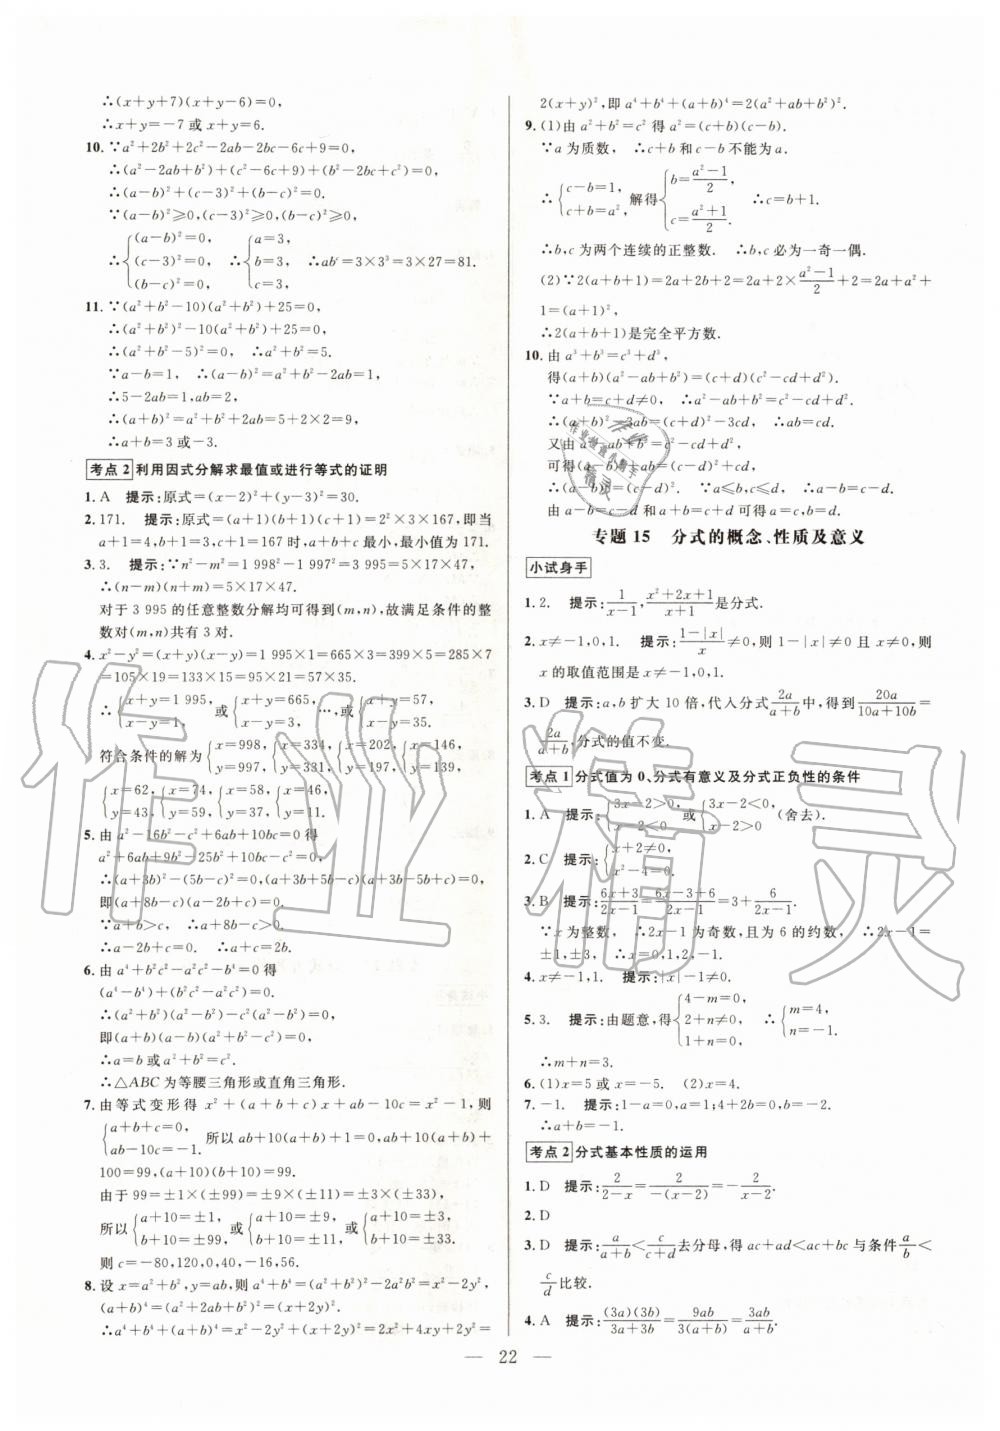 ∴(x+y+7)(x+y-6)=0,
∴x+y=-7 或 x+y=6.
10. ∵a²+2b²+2c²-2ab-2bc-6c+9=0,
∴(a²-2ab+b²)+(c²-6c+9)+(b²-2bc+c²)=0,
∴(a-b)²+(c-3)²+(b-c)²=0,
∵(a-b)²≥0,(c-3)²≥0,(b-c)²≥0,
∴{(a-b)²=0, (c-3)²=0, (b-c)²=0, ∴{a=3, b=3, c=3, ∴abᶜ=3×3³=3×27=81.
11. ∵(a²+b²-10)(a²+b²)+25=0,
∴(a²+b²)²-10(a²+b²)+25=0,
∴(a²+b²-5)²=0, ∴a²+b²=5.
∵a-b=1, ∴(a-b)²=a²+b²-2ab=1,
∴5-2ab=1,ab=2,
∴(a+b)²=a²+b²+2ab=5+2×2=9,
∴a+b=3 或-3.
考点 2 利用因式分解求最值或进行等式的证明
1. A 提示:原式=(x-2)²+(y-3)²=30.
2. 171. 提示:原式=(a+1)(b+1)(c+1)=2²×3×167,即当
a+1=4,b+1=3,c+1=167 时,a+b+c 最小,最小值为 171.
3. 3. 提示:∵n²-m²=1 998²-1 997²=5×17×47.
∴(n-m)(n+m)=5×17×47.
对于 3 995 的任意整数分解均可得到(m,n),故满足条件的整
数对(m,n)共有 3 对.
4. x²-y²=(x+y)(x-y)=1 995×1=665×3=399×5=285×7
=105×19=133×15=95×21=57×35.
∴{x+y=1 995, x-y=1, 或{x+y=665, x-y=3, …,或{x+y=57, x-y=35,
符合条件的解为{x=998, y=997, {x=334, y=331, {x=202, y=197, {x=146, y=139,
{x=62, y=43, {x=74, y=59, {x=58, y=37, {x=46, y=11.
5. 由 a²-16b²-c²+6ab+10bc=0 得
a²+6ab+9b²-25b²+10bc-c²=0,
∴(a+3b)²-(5b-c)²=0, ∴(a+3b+5b-c)(a+3b-5b+c)=0,
即(a+8b-c)(a-2b+c)=0.
∵a+b>c, ∴a+8b-c>0.
∴a-2b+c=0. ∴a+c=2b.
6. 由 a⁴+b²c²-a²c²-b⁴=0 得
(a⁴-b⁴)+(b²c²-a²c²)=0.
∴(a²+b²)(a²-b²)-c²(a²-b²)=0,
即(a+b)(a-b)(a²+b²-c²)=0,
∴a=b 或 a²+b²=c².
∴△ABC 为等腰三角形或直角三角形.
7. 由等式变形得 x²+(a+b+c)x+ab-10c=x²-1,则
{a+b+c=0, ab-10c=-1. 所以 ab+10(a+b)+1=0,ab+10(a+b)+
100=99,(a+10)(b+10)=99.
由于 99=±1×(±99)=±9×(±11)=±3×(±33),
所以{a+10=±1, b+10=±99, 或{a+10=±9, b+10=±11, 或{a+10=±3, b+10=±33.
则 c=-80,120,0,40,-16,56.
8. 设 x=a²+b²,y=ab,则 a⁴+b⁴=(a²+b²)²-2a²b²=x²-2y²,
(a+b)⁴=(a²+b²+2ab)²=(x+2y)²,
∴a⁴+b⁴+(a+b)⁴=x²-2y²+(x+2y)²=2x²+4xy+2y²=
2(x+y)²,即 a⁴+b⁴+(a+b)⁴=2(a²+ab+b²)².
9. (1)由 a²+b²=c² 得 a²=(c+b)(c-b).
∵a 为质数, ∴c+b 和 c-b 不能为 a.
∴{c-b=1, c+b=a², 解得{b=(a²-1)/2, c=(a²+1)/2. ∴c=b+1.
∴b,c 为两个连续的正整数. ∴b,c 必为一奇一偶.
(2)∵2(a+b+1)=2a+2b+2=2a+2×(a²-1)/2+2=2a+a²+
1=(a+1)²,
∴2(a+b+1)是完全平方数.
10. 由 a³+b³=c³+d³,
得(a+b)(a²-ab+b²)=(c+d)(c²-cd+d²).
∵a+b=c+d≠0, ∴a²-ab+b²=c²-cd+d².
∴(a+b)²-3ab=(c+d)²-3cd, ∴ab=cd.
又由 a²-ab+b²=c²-cd+d²,
可得(a-b)²=(c-d)².
∴(a-b)=(c-d). ∵a≤b,c≤d, ∴a-b=c-d.
由 a-b=c-d 和 a+b=c+d 可得 a=c,b=d.
专题 15 分式的概念、性质及意义
小试身手
1. 2. 提示:1/(x-1),(x²+2x+1)/(x+1)是分式.
2. x≠-1,0,1. 提示:(1-|x|)/x≠0,则 1-|x|≠0 且 x≠0,则
x 的取值范围是 x≠-1,0,1.
3. D 提示:a,b 扩大 10 倍,代入分式2a/(a+b)中,得到20a/(10a+10b)=
2a/(a+b),分式的值不变.
考点 1 分式值为 0、分式有意义及分式正负性的条件
1. A 提示:{3x-2>0, x-2<0 或{3x-2<0, x-2>0 (舍去).
2. C 提示:{x+2≠0, x²-4=0.
3. B 提示:(6x+3)/(2x-1)=(6x-3+6)/(2x-1)=3+6/(2x-1).
∵x 为整数, ∴2x-1 为奇数,且为 6 的约数, ∴2x-1=
±1,±3, ∴x=0,1,2,-1.
4. x≠-1,1. 提示:|x|-1≠0.
5. 3. 提示:由题意,得{4-m=0, 2+n≠0, 1+n=0, ∴{m=4, n=-1.
∴m+n=3.
6. (1)x=5 或 x=-5. (2)x=4.
7. -1. 提示:1-a=0,a=1;4+2b=0,b=-2.
∴a+b=-1.
考点 2 分式基本性质的运用
1. D 提示:2/(2-x)=2/(-(x-2))=-2/(x-2).
2. D
3. D 提示:a/(a+b)<c/(c+d)去分母,得 ac+ad<ac+bc 与条件a/b<
c/d比较.
4. A 提示:(3a)(3b)/(3a+3b)=9ab/(3(a+b))=3ab/(a+b).
— 22 —
作业精灵